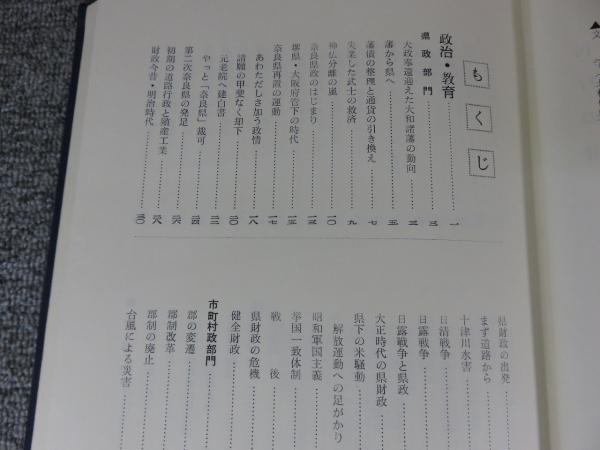 もくじ
政治・教育……一
県政部門……三
大政奉還迎えた大和諸藩の動向……三
藩から県へ……五
藩債の整理と通貨の引き換え……七
失業した武士の救済……九
神仏分離の嵐……一〇
奈良県政のはじまり……一三
堺県・大阪府管下の時代……一五
奈良県再置の運動……一七
あわただしさ加う政情……一八
請願の甲斐なく却下……二〇
元老院へ建白書……二二
やっと「奈良県」裁可……二四
第二次奈良県の発足……二六
初期の道路行政と殖産工業……二八
財政今昔・明治時代……三〇
県財政の出発……
まず道路から……
十津川水害……
日清戦争……
日露戦争……
日露戦争と県政……
大正時代の県財政……
県下の米騒動……
解放運動への足がかり
昭和軍国主義……
挙国一致体制……
戦後……
県財政の危機……
健全財政……
市町村政部門……
郡の変遷……
郡制改革……
郡制の廃止……
台風による災害……